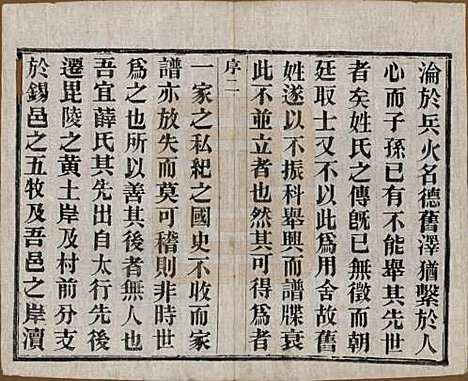 淪於兵火名德舊澤猶繫於人
心而子孫已有不能舉其先世
者矣姓氏之傳旣已無徵而朝
廷取士又不以此為用舍故舊
姓遂以不振科舉興而譜牒衰
此不並立者也然其可得為者
序二
一家之私紀之國史不收而家
譜亦放失而莫可稽則非時世
為之也所以善其後者無人也
吾宜薛氏其先出自太行六世
遷毘陵之黃土岸及村前分支
於錫邑之五牧及吾邑之岸瀆